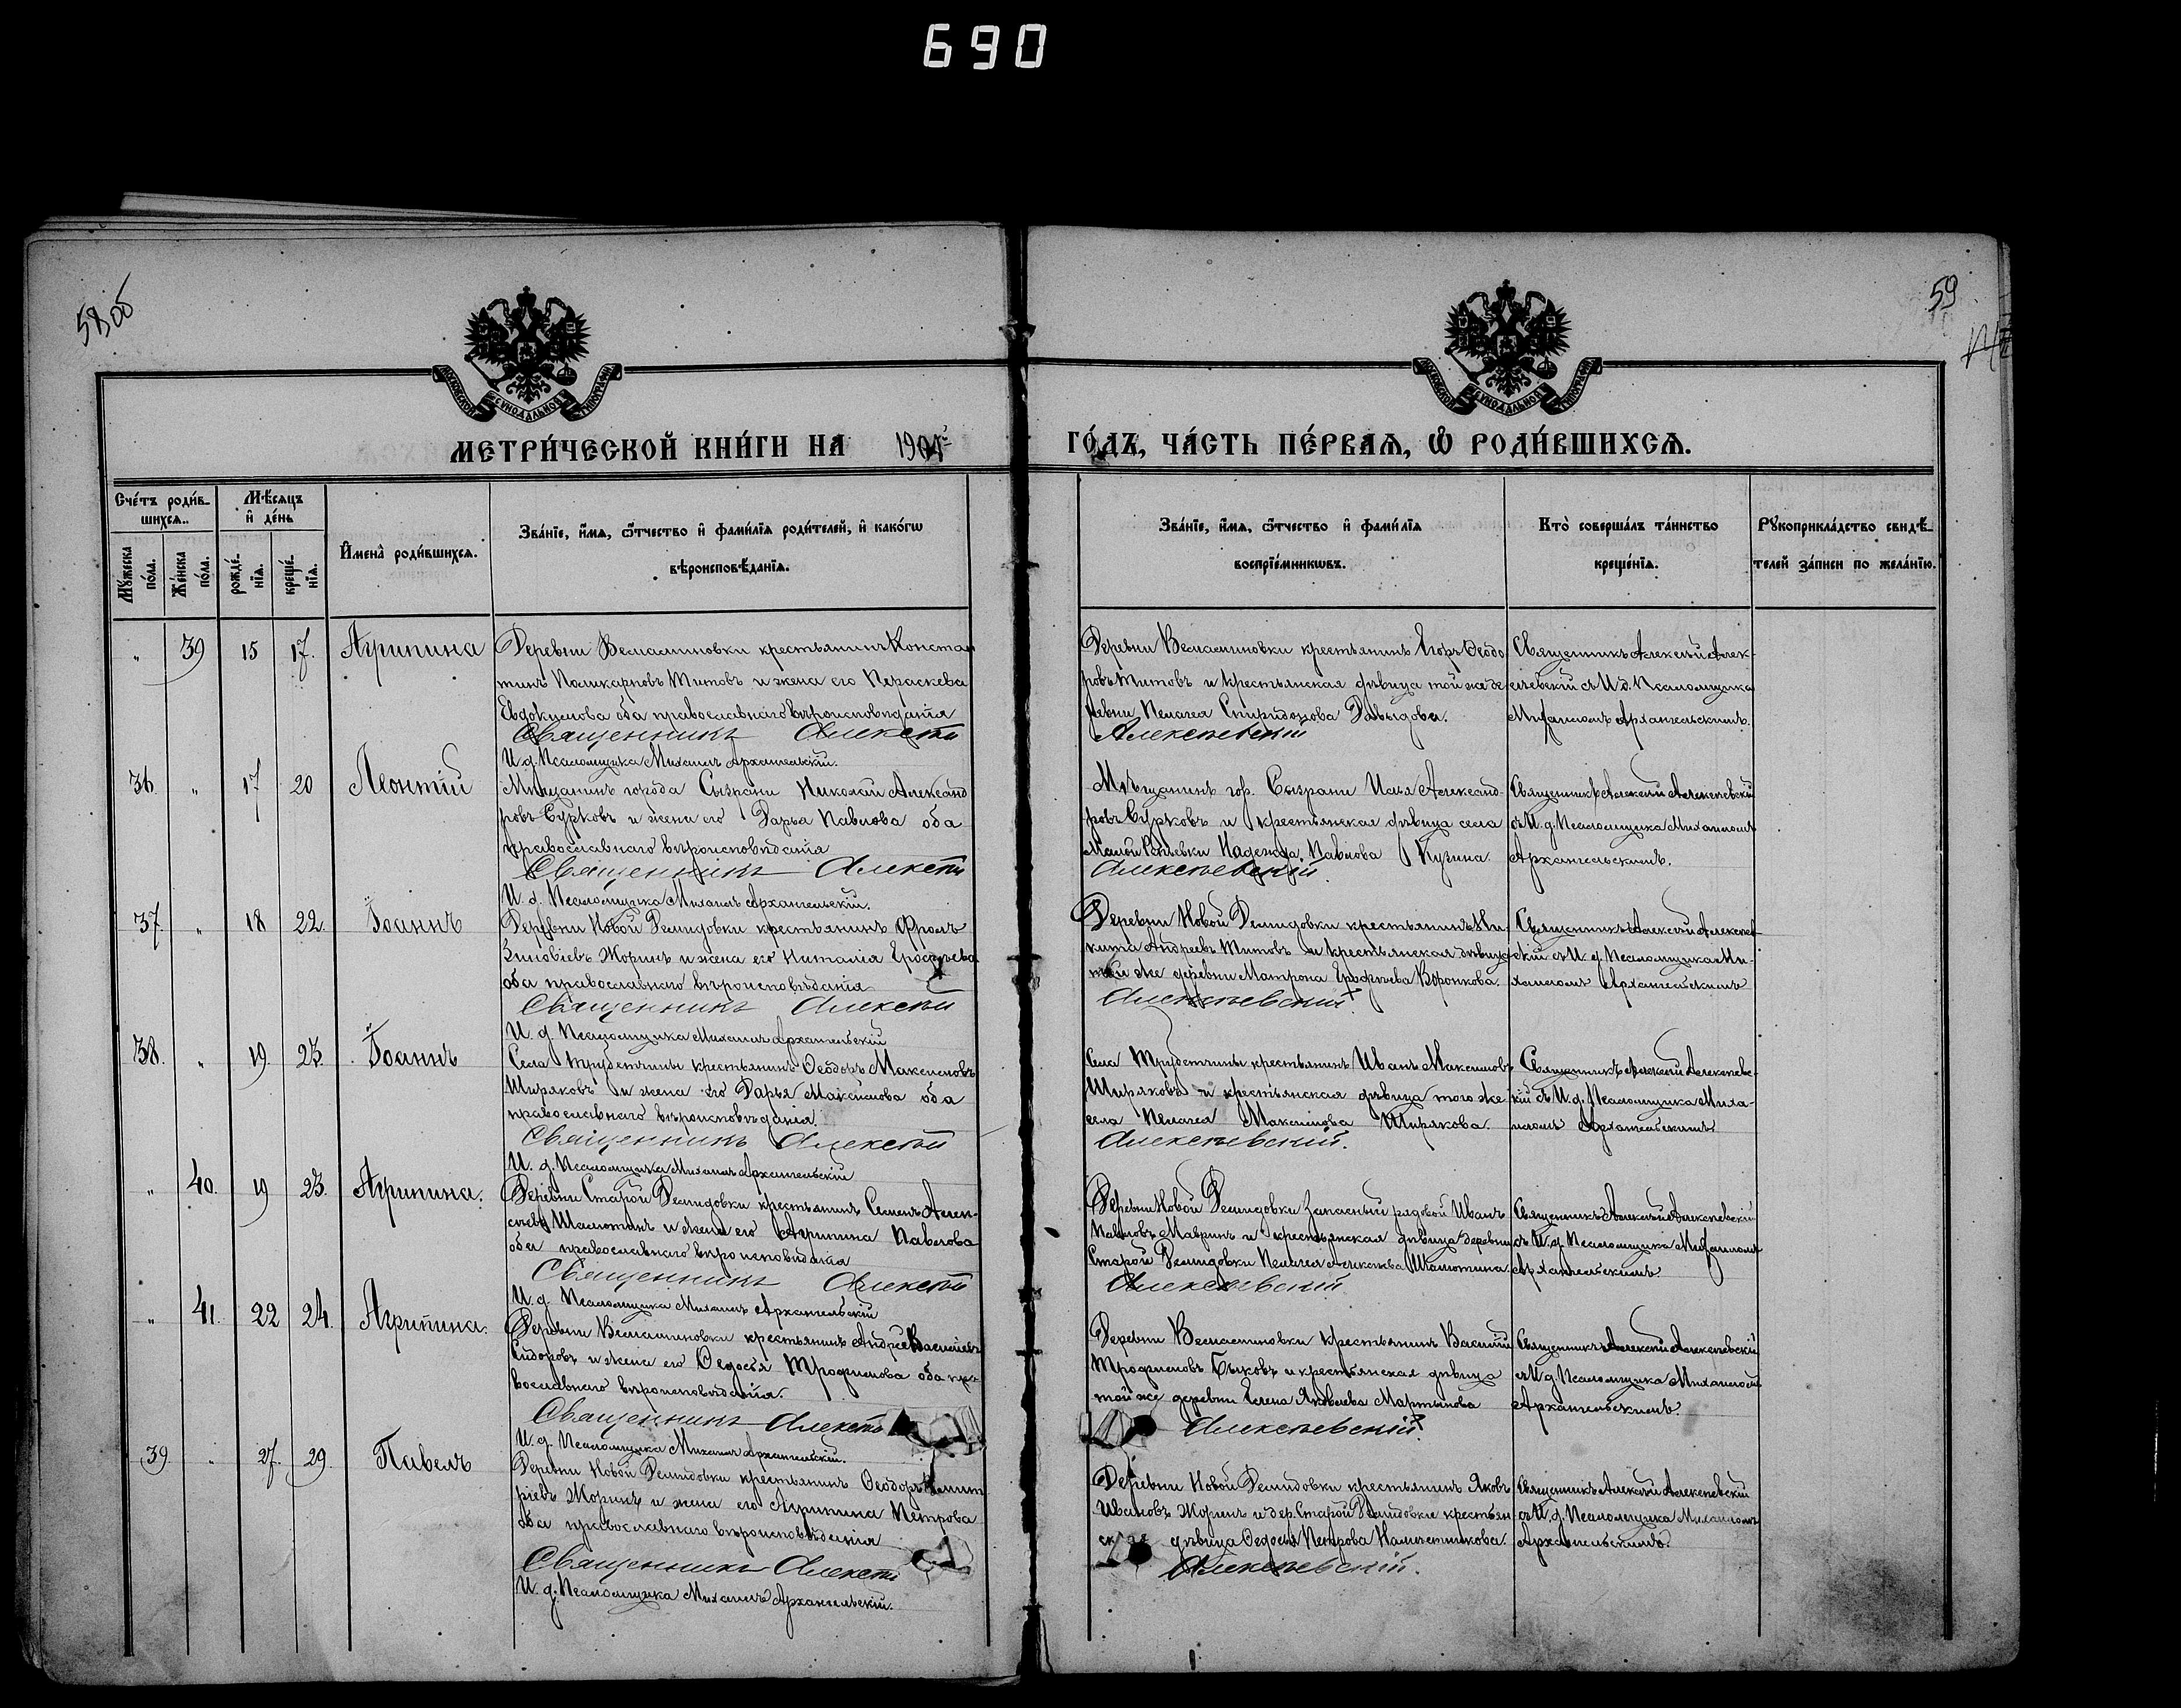 690
58об
59
МОСКОВСКОЙ СѴНОДАЛЬНОЙ ТИПОГРАФІИ
МОСКОВСКОЙ СѴНОДАЛЬНОЙ ТИПОГРАФІИ
МЕТРИ́ЧЕСКОЙ КНИ́ГИ НА 1901
ГО́ДЪ, ЧА́СТЬ ПЕ́РВАѦ, Ѡ РОДИ́ВШИХСѦ.
Сче́тъ роди́в-
шихся.
Мѣ́сяцъ
и҆ де́нь
Мꙋ́жеска
по́ла.
Же́нска
по́ла.
рожде́-
нїѧ.
креще́-
нїѧ.
И҆мена̀ роди́вшихсѧ.
Зва́нїе, и҆́мѧ, ѻ҆́тчество и҆ фами́лїѧ роди́телей, и҆ како́гѡ
вѣроисповѣ́данїѧ.
Зва́нїе, и҆́мѧ, ѻ҆́тчество и҆ фами́лїѧ
воспрїе́мникѡвъ.
Кто̀ соверша́лъ та́инство
креще́нїѧ.
Рꙋкоприкла́дство свидѣ́-
телей за́писи по жела́нїю.
„ 39 15 17. Агрипина
Деревни крестьянинъ Констан
тинъ Поликарповъ Титовъ и жена его Параскева
Евдокимова оба православнаго вѣроисповѣданія
Священникъ Алексѣй
И. д. Псаломщика Михаилъ Архангельскій.
Деревни крестьянинъ Егоръ Ѳеодо
ровъ Титовъ и крестьянская дѣвица той же де
ревни Пелагея Спиридонова Давыдова.
Алексѣевскій
Священникъ Алексѣй Алек-
сѣевскій съ И. д. Псаломщика
Михаиломъ Архангельскимъ.
36. „ 17 20 Леонтій
Мѣщанинъ города Сызрани Николай Александ
ровъ Сурковъ и жена его Дарья Павлова оба
православнаго вѣроисповѣданія
Священникъ Алексѣй
И. д. Псаломщика Михаилъ Архангельскій.
Мѣщанинъ гор. Сызрани Илья Александ-
ровъ Сурковъ и крестьянская дѣвица села
Малой Надежда Павлова Кузина.
Алексѣевскій.
Священникъ Алексѣй Алексѣевскій
съ И. д. Псаломщика Михаиломъ
Архангельскимъ.
37. „ 18 22. Іоаннъ
Деревни Новой Демидовки крестьянинъ Фролъ
Зиновіевъ Жоринъ и жена его Наталія
оба православнаго вѣроисповѣданія
Священникъ Алексѣй
И. д. Псаломщика Михаилъ Архангельскій
Деревни Новой Демидовки крестьянинъ Ни-
кита Андреевъ Титовъ и крестьянская дѣвица
той же деревни Матрона Воронкова.
Алексѣевскій.
Священникъ Алексѣй Алексѣев
скій съ И. д. Псаломщика Ми-
хаиломъ Архангельскимъ
38. „ 19. 23. Іоаннъ
Села крестьянинъ Ѳеодоръ Максимовъ
Ширяковъ и жена его Дарья Максимова оба
православнаго вѣроисповѣданія.
Священникъ Алексѣй
И. д. Псаломщика Михаилъ Архангельскій
Села крестьянинъ Иванъ Максимовъ
Ширяковъ и крестьянская дѣвица того же
села Пелагея Максимова Ширякова
Алексѣевскій.
Священникъ Алексѣй Алексѣевс-
кій съ И. д. Псаломщика Миха-
иломъ Архангельскимъ
„ 40. 19 23. Агрипина.
Деревни Старой Демидовки крестьянинъ Семенъ Алек-
сѣевъ Шамотинъ и жена его Агрипина Павлова
оба православнаго вѣроисповѣданія
Священникъ Алексѣй
И. д. Псаломщика Михаилъ Архангельскій
Деревни Новой Демидовки запасный рядовой Иванъ
Павловъ Мавринъ и крестьянская дѣвица деревни
Старой Демидовки Пелагея Алексѣева Шамотина.
Алексѣевскій
Священникъ Алексѣй Алексѣевскій
съ И. д. Псаломщика Михаиломъ
Архангельскимъ.
„ 41. 22 24. Агрипина.
Деревни крестьянинъ Андрей Васильевъ
Сидоровъ и жена его Ѳедосья Трофимова оба пра-
вославнаго вѣроисповѣданія.
Священникъ Алексѣй
И. д. Псаломщика Михаилъ Архангельскій.
Деревни крестьянинъ Василій
Трофимовъ Быковъ и крестьянская дѣвица
той же деревни Елена Яковлева Мартынова
Алексѣевскій.
Священникъ Алексѣй Алексѣевскій
съ И. д. Псаломщика Михаиломъ
Архангельскимъ.
39. „ 27. 29. Павелъ
Деревни Новой Демидовки крестьянинъ Ѳеодоръ Димит
ріевъ Жоринъ и жена его Агрипина Петрова
оба православнаго вѣроисповѣданія
Священникъ Алексѣй
И. д. Псаломщика Михаилъ Архангельскій.
Деревни Новой Демидовки крестьянинъ Яковъ
Ивановъ Жоринъ и дер. Старой Демидовки крестьян
ская дѣвица Ѳедосья Петрова Намѣстникова.
Алексѣевскій.
Священникъ Алексѣй Алексѣевскій
съ И. д. Псаломщика Михаиломъ
Архангельскимъ.